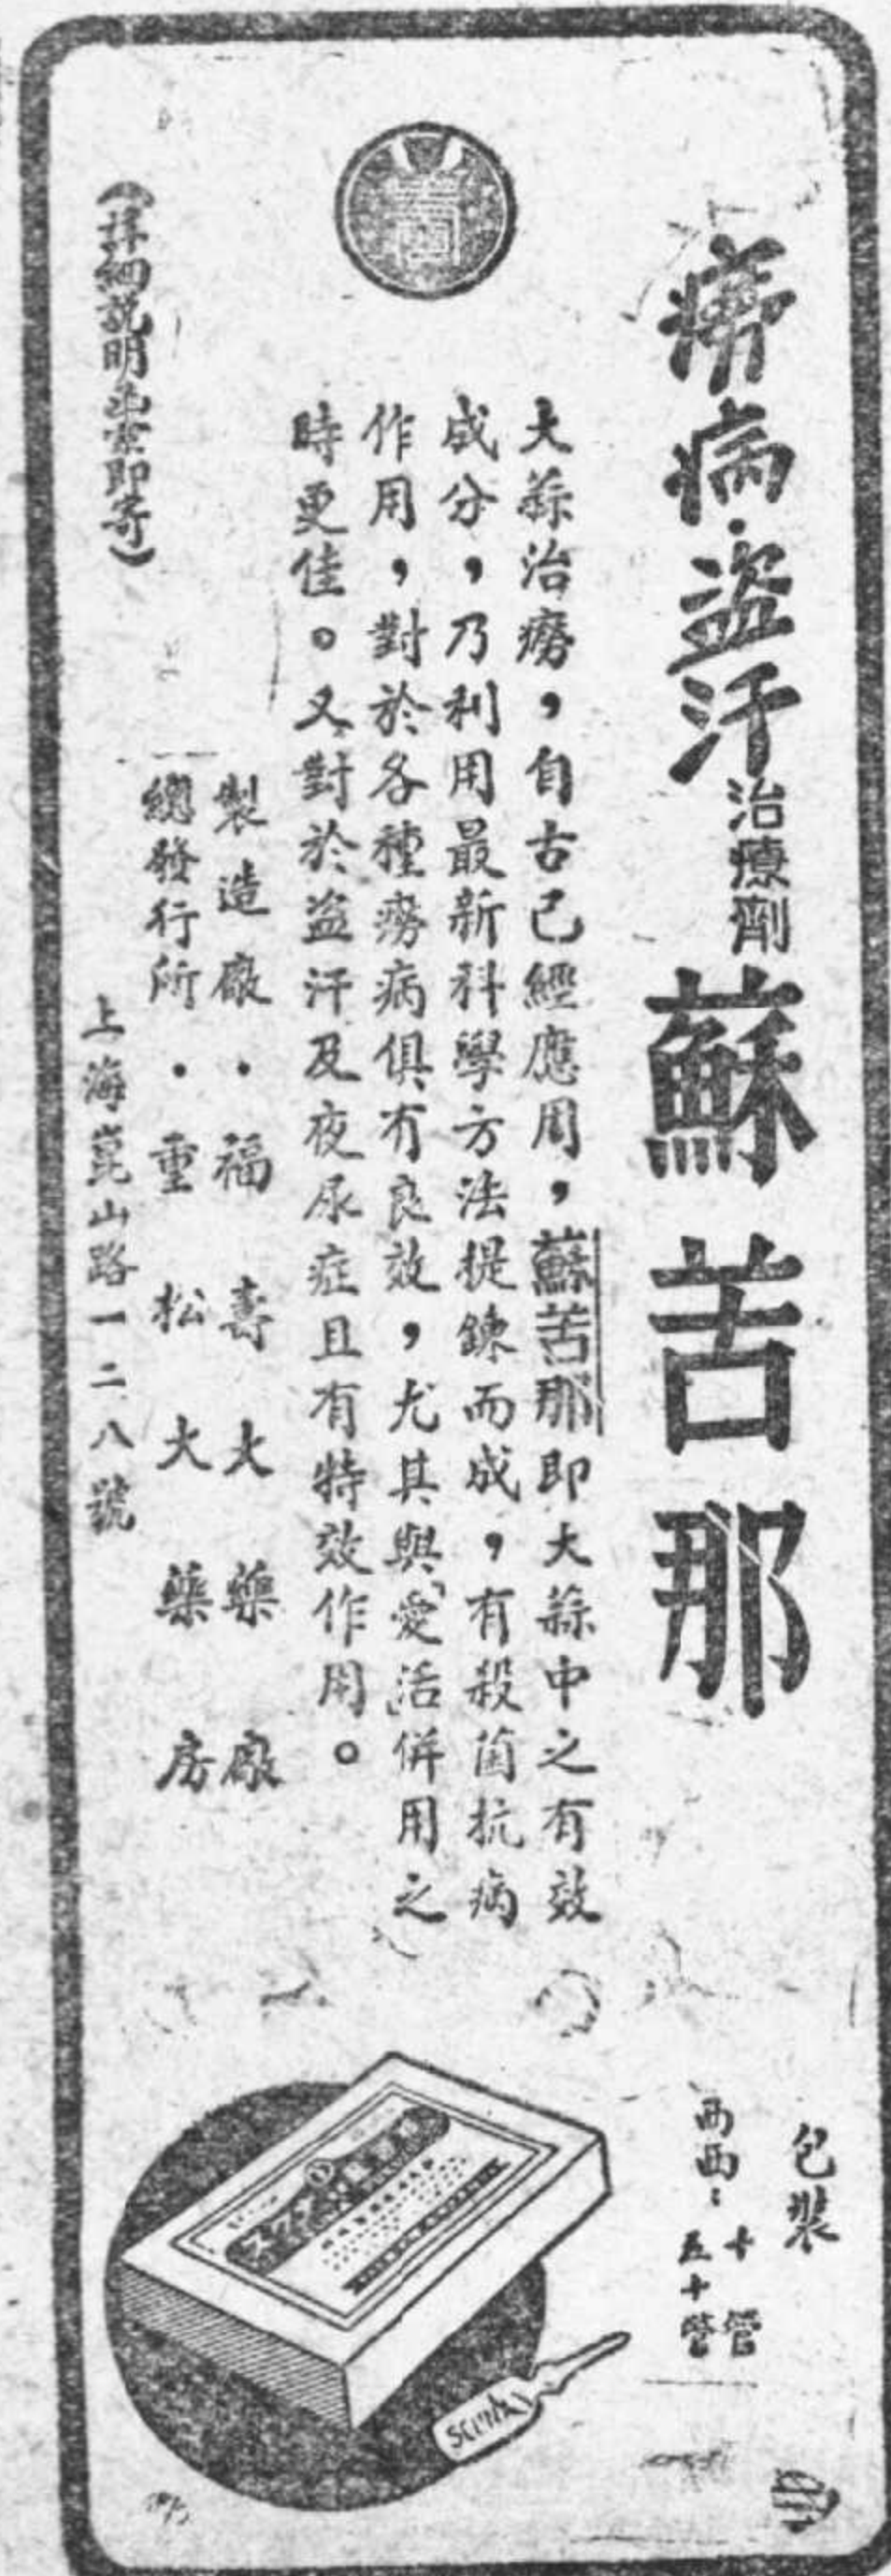 癆病・盜汗治療劑
蘇苦那
大蒜治癆，自古已經應用，蘇苦那即大蒜中之有效
成分，乃利用最新科學方法提鍊而成，有殺菌抗病
作用，對於各種癆病俱有良效，尤其與「愛活」併用之
時更佳。又對於盜汗及夜尿症且有特效作用。
製造廠・福壽大藥廠
總發行所・重松大藥房
上海崑山路一二八號
（詳細說明函索即寄）
包裝
西西：
十管
五十管
スクナ